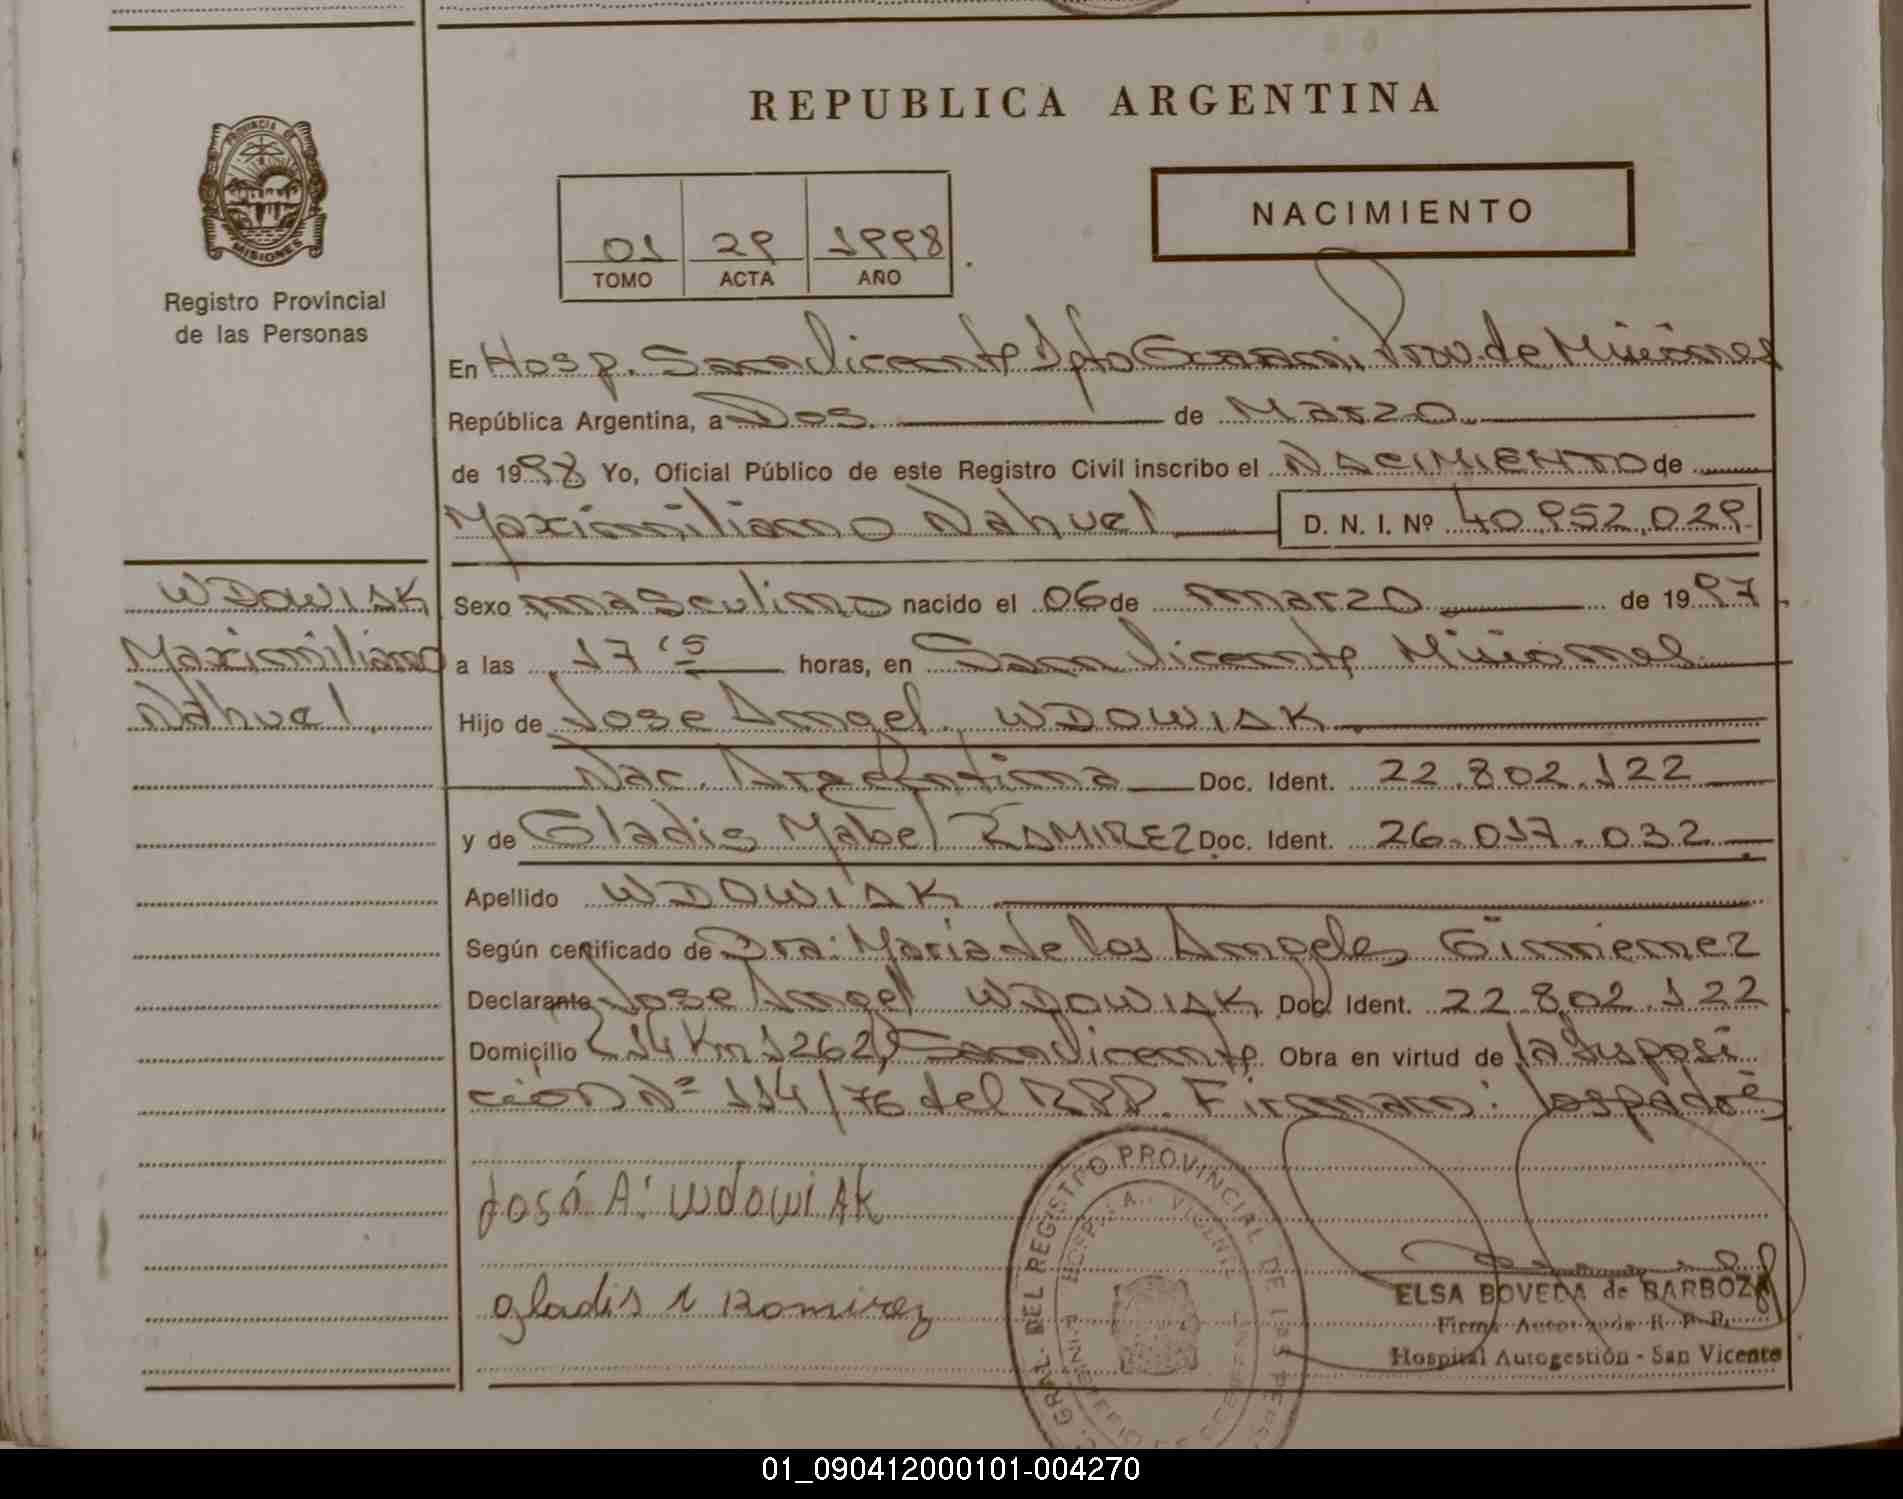 REPUBLICA ARGENTINA
PROVINCIA DE
MISIONES
Registro Provincial
de las Personas
NACIMIENTO
01 29 1998
TOMO ACTA AÑO
En Hosp. San Vicente Dpto Guarani, Prov. de Misiones
República Argentina, a Dos de Marzo
de 1998 Yo, Oficial Público de este Registro Civil inscribo el NACIMIENTO de
Maximiliano Nahuel D. N. I. Nº 40.952.029
WDOWIAK
Maximiliano
Nahuel
Sexo masculino nacido el 06 de marzo de 1997
a las 17 15 horas, en San Vicente Misiones
Hijo de Jose Angel WDOWIAK
Nac. Argentina Doc. Ident. 22.802.122
y de Gladis Mabel RAMIREZ Doc. Ident. 26.017.032
Apellido WDOWIAK
Según certificado de Dra: Maria de los Angeles Gimenez
Declarante Jose Angel WDOWIAK Doc. Ident. 22.802.122
Domicilio 14 Km 1262, San Vicente Obra en virtud de la Disposi
ción Nº 114/76 del RPP. Firman: los padres
José A. WdowiAK
gladis Ramirez
GRAL. DEL REGISTRO PROVINCIAL DE LAS PERS
HOSP. S. A. VICENTE
ELSA BOVEDA de BARBOZA
Firma Autorizada R. P. P.
Hospital Autogestión - San Vicente
01_090412000101-004270